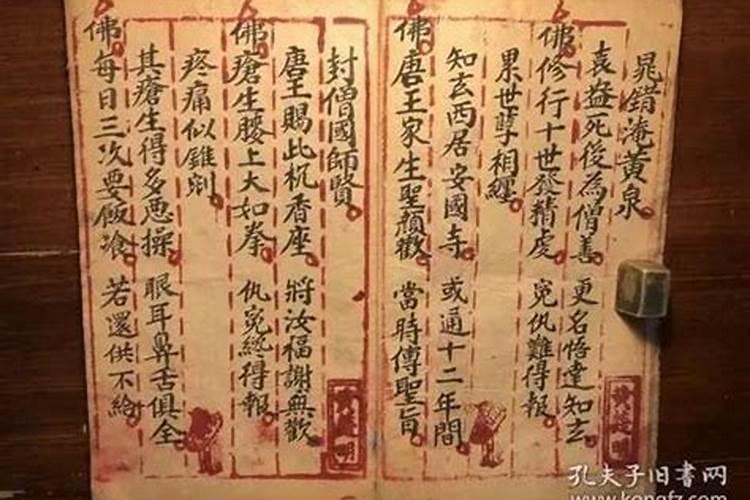 晁錯淹黄泉
袁盎死後為僧善 更名悟達知玄
佛修行十世發精虔 寃仇難得報
累世孽相纏
知玄西居安國寺 或通十二年間
佛唐王家生聖顔歡 當時傳聖旨
封僧國師賢
唐王賜此枙香座 將汝福謝無歡
佛瘡生腰上大如拳 仇寃終得報
疼痛似錐剜
其瘡生得多悪操 眼耳鼻舌俱全
佛每日三次要飯飡 若還供不給
孔夫子旧書网
www.kongfz.com